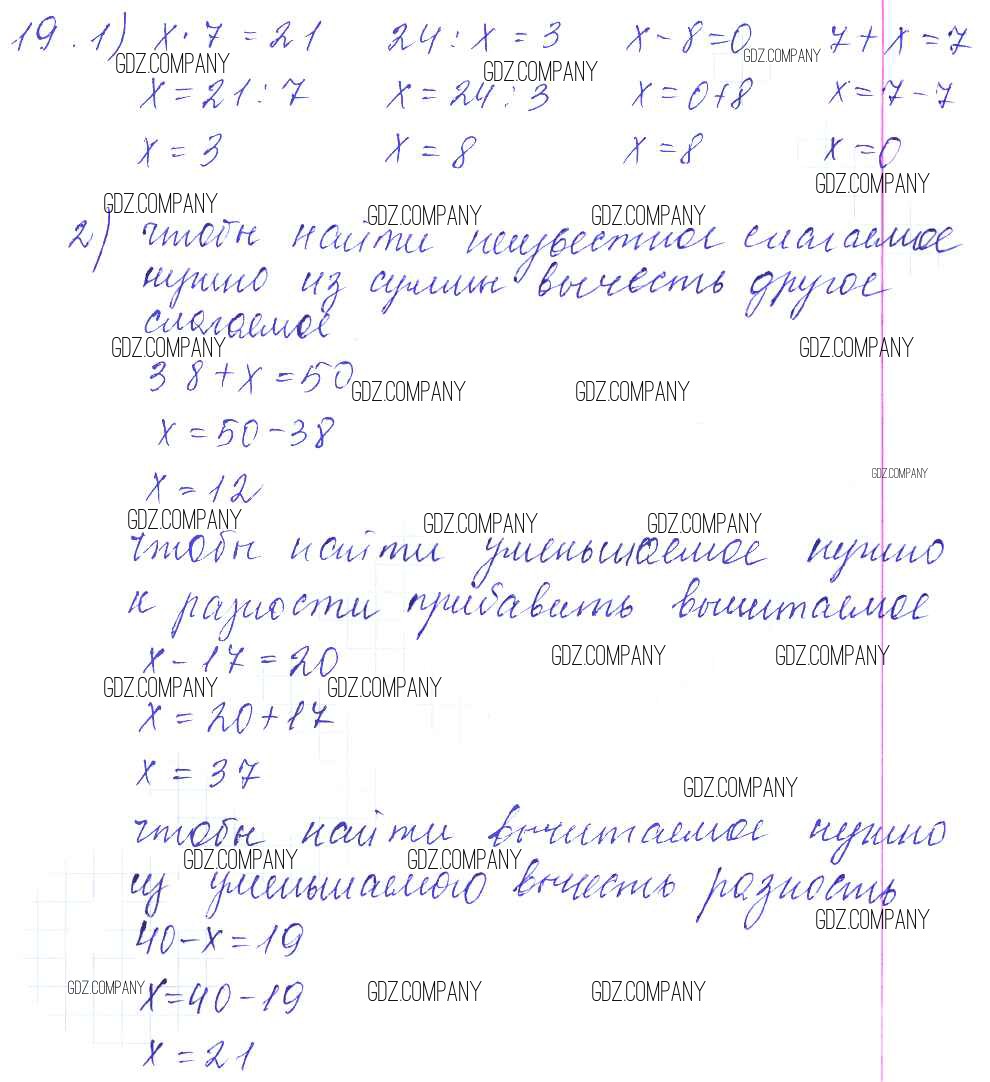 19. 1) x · 7 = 21 24 : x = 3 x - 8 = 0 7 + x = 7
GDZ.COMPANY GDZ.COMPANY GDZ.COMPANY
x = 21 : 7 x = 24 : 3 x = 0 + 8 x = 7 - 7
x = 3 x = 8 x = 8 x = 0
GDZ.COMPANY
GDZ.COMPANY GDZ.COMPANY GDZ.COMPANY
2) чтобы найти неизвестное слагаемое
нужно из суммы вычесть другое
слагаемое
GDZ.COMPANY GDZ.COMPANY
38 + x = 50
GDZ.COMPANY GDZ.COMPANY
x = 50 - 38
GDZ.COMPANY
x = 12
GDZ.COMPANY GDZ.COMPANY GDZ.COMPANY
чтобы найти уменьшаемое нужно
к разности прибавить вычитаемое
x - 17 = 20
GDZ.COMPANY GDZ.COMPANY
GDZ.COMPANY GDZ.COMPANY
x = 20 + 17
x = 37
GDZ.COMPANY
чтобы найти вычитаемое нужно
GDZ.COMPANY GDZ.COMPANY
из уменьшаемого вычесть разность
GDZ.COMPANY
40 - x = 19
GDZ.COMPANY GDZ.COMPANY GDZ.COMPANY
x = 40 - 19
x = 21